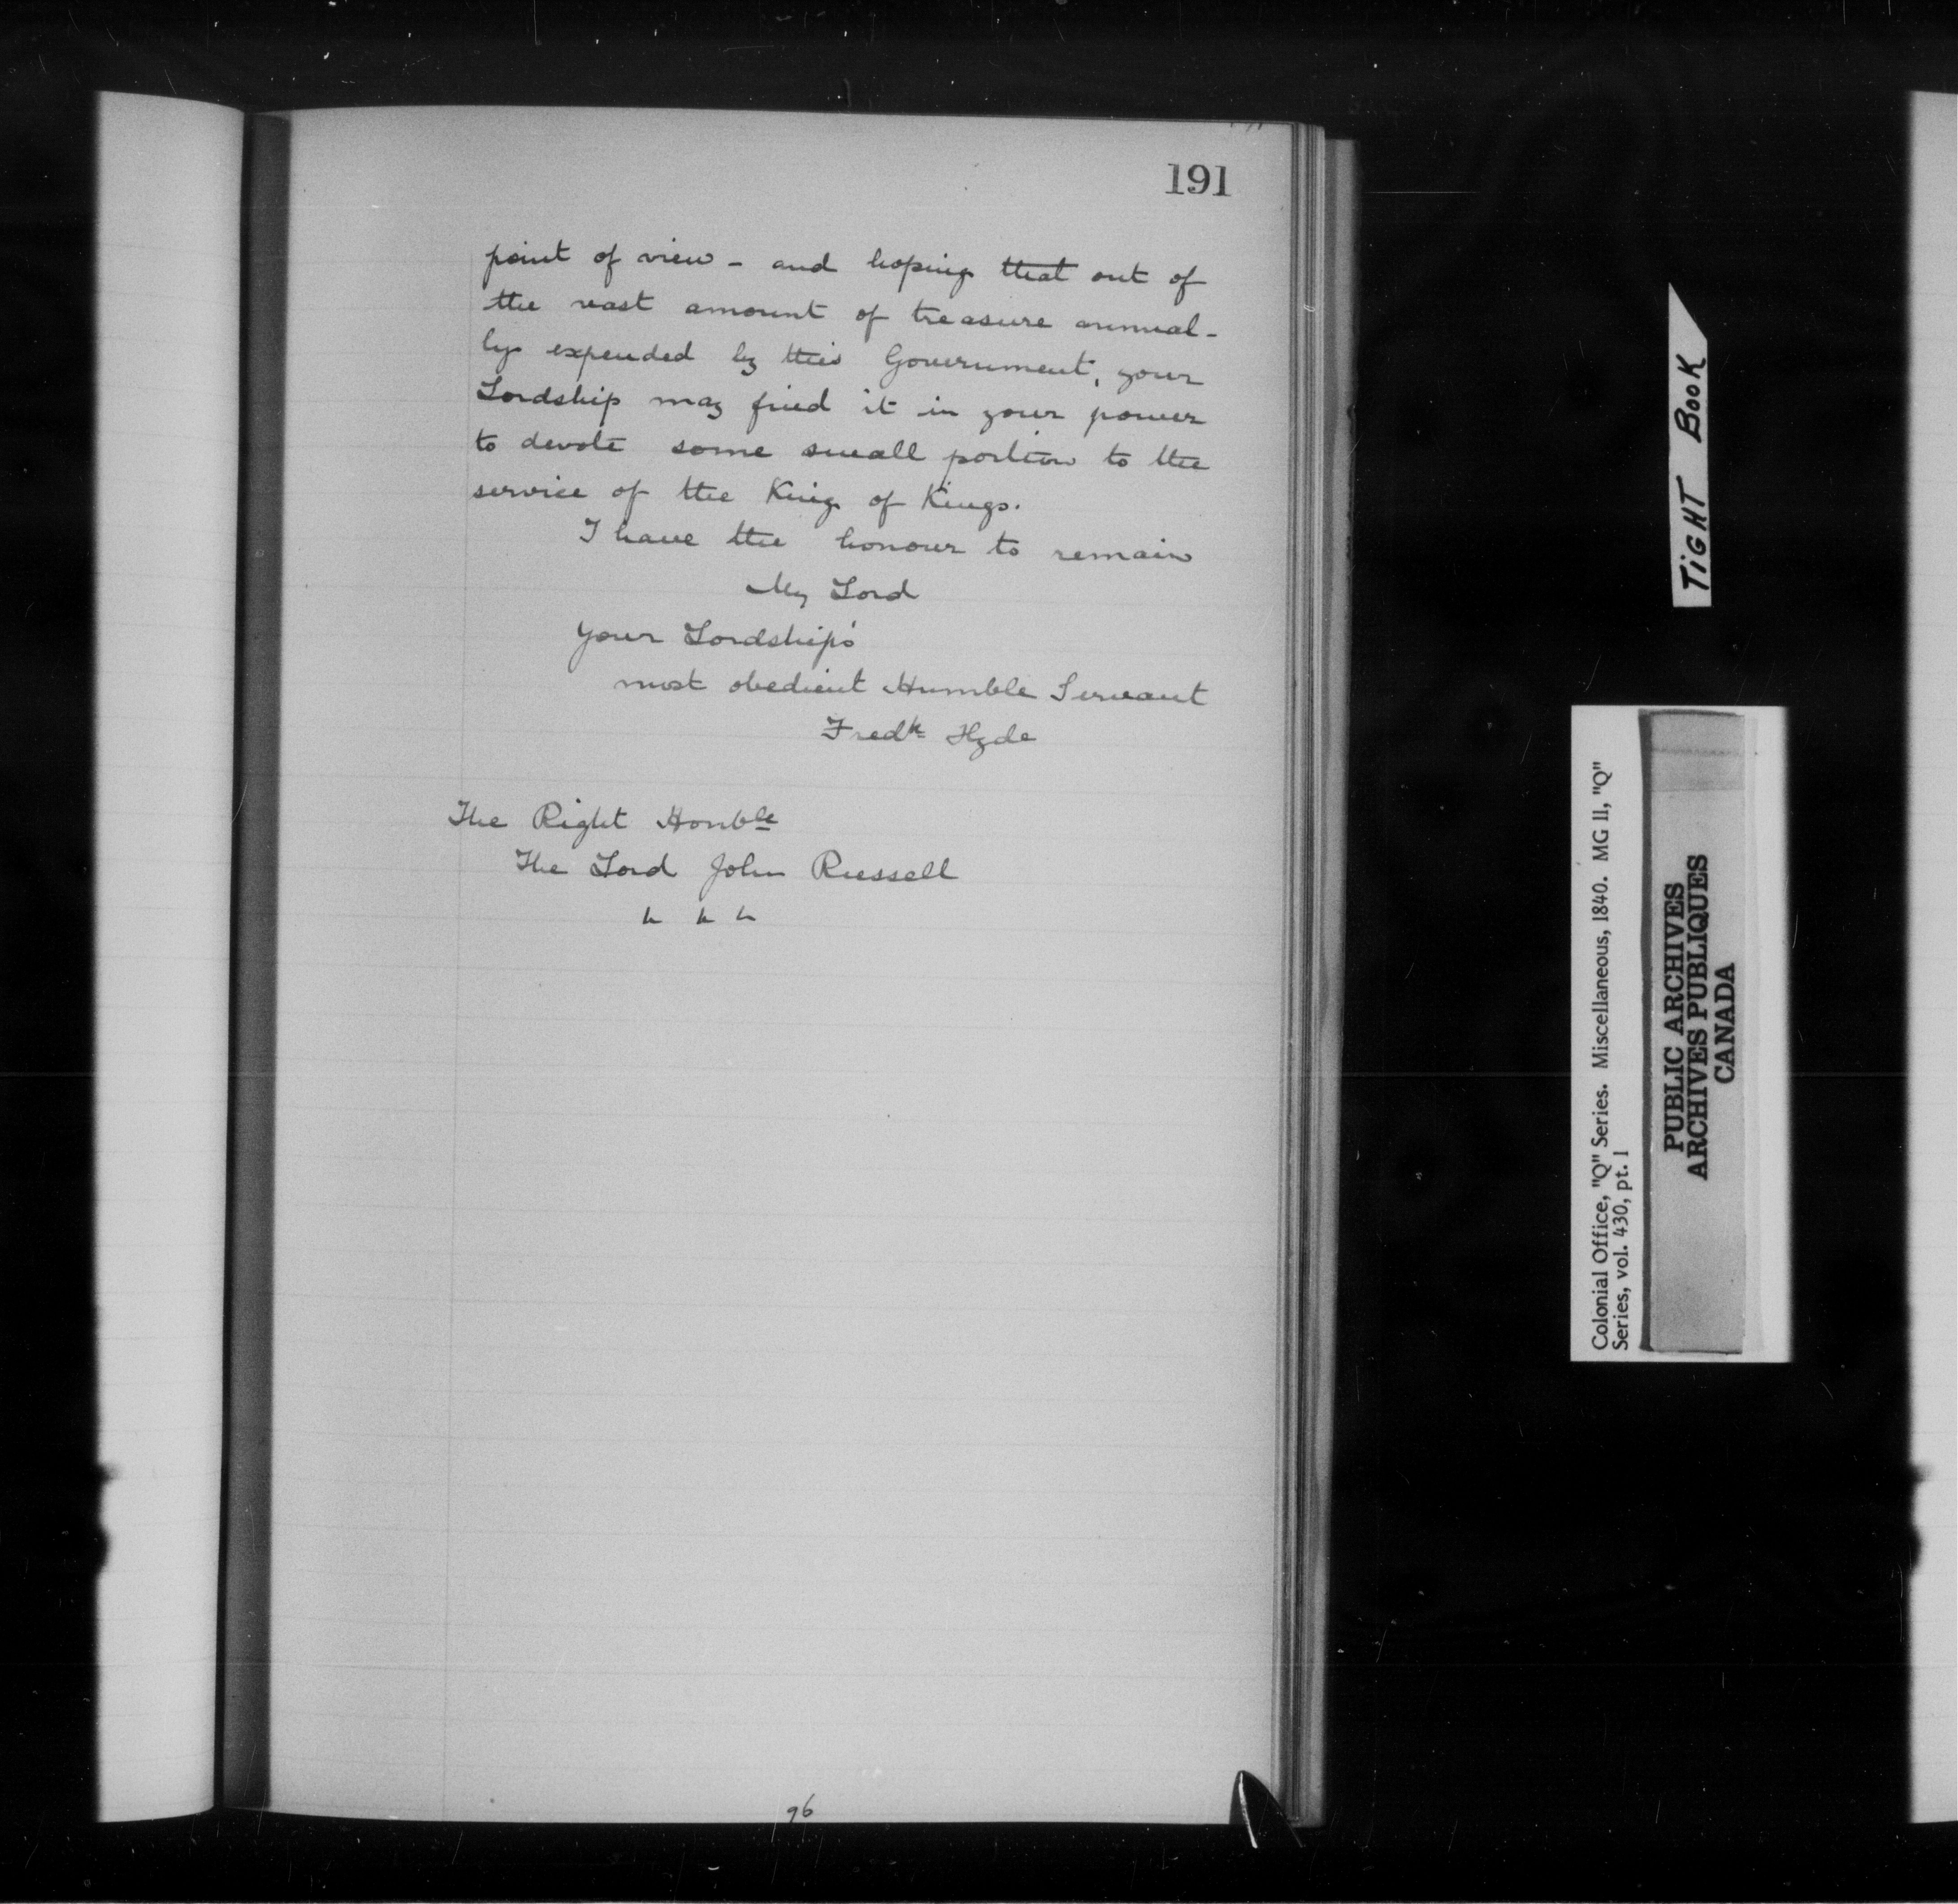 191
point of view - and hoping that out of
the vast amount of treasure annual-
ly expended by this Government, your
Lordship may find it in your power
to devote some small portion to the
service of the King of Kings.
I have the honour to remain
My Lord
Your Lordship's
most obedient Humble Servant
Fredk Hyde
The Right Honble
The Lord John Russell
96
TIGHT BOOK
Colonial Office, "Q" Series. Miscellaneous, 1840. MG 11, "Q"
Series, vol. 430, pt. 1
PUBLIC ARCHIVES
ARCHIVES PUBLIQUES
CANADA